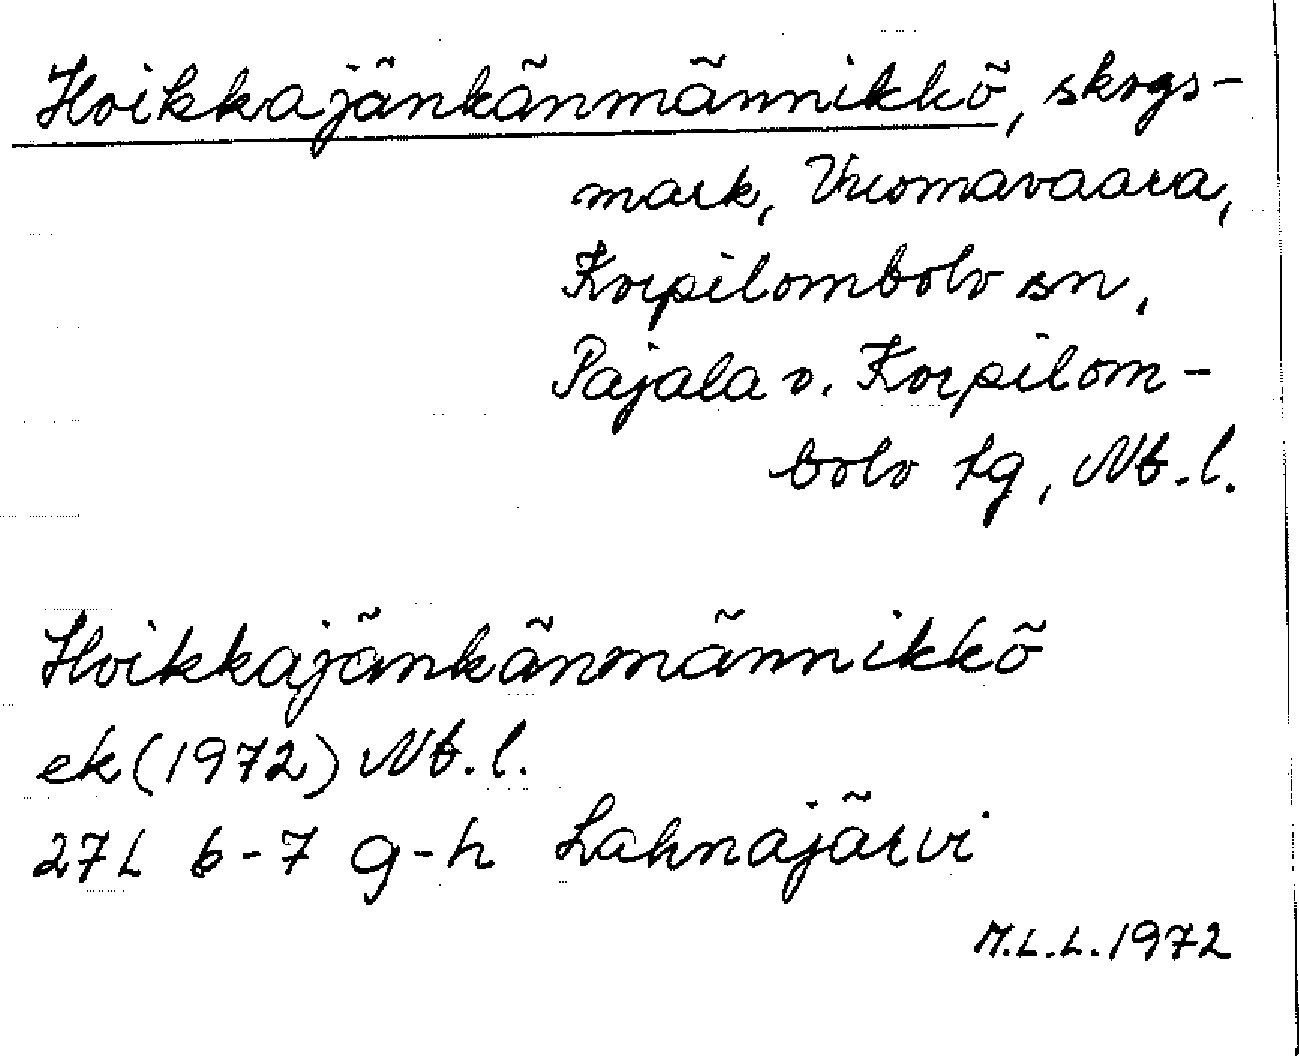 Hoikkajänkänmännikkö, skogs-
mark, Vuomavaara,
Korpilombolo sn,
Pajala o. Korpilom-
bolo tg, Nb.l.
Hoikkajänkänmännikkö
ek (1972) Nb.l.
27L 6-7 g-h Lahnajärvi
M.L.L. 1972